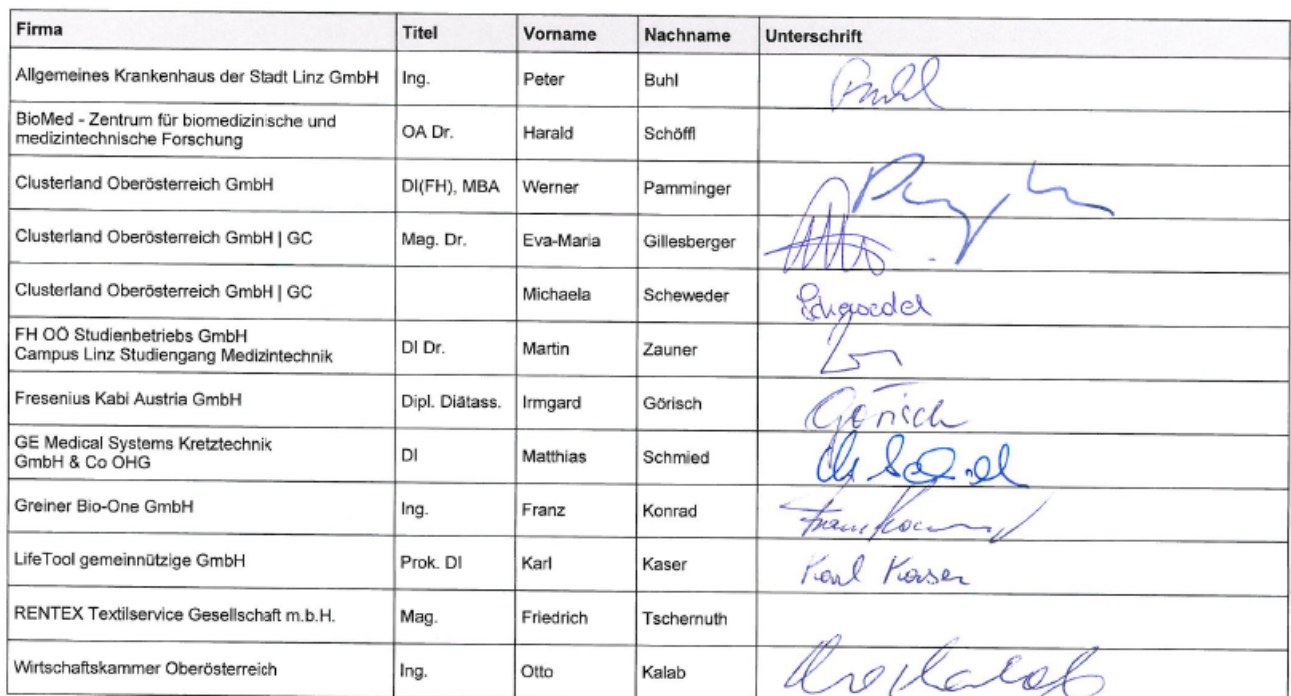 Firma Titel Vorname Nachname Unterschrift
Allgemeines Krankenhaus der Stadt Linz GmbH Ing. Peter Buhl Buhl
BioMed - Zentrum für biomedizinische und
medizintechnische Forschung OA Dr. Harald Schöffl
Clusterland Oberösterreich GmbH DI(FH), MBA Werner Pamminger
Clusterland Oberösterreich GmbH | GC Mag. Dr. Eva-Maria Gillesberger
Clusterland Oberösterreich GmbH | GC Michaela Scheweder
FH OÖ Studienbetriebs GmbH
Campus Linz Studiengang Medizintechnik DI Dr. Martin Zauner
Fresenius Kabi Austria GmbH Dipl. Diätass. Irmgard Görisch Görisch
GE Medical Systems Kretztechnik
GmbH & Co OHG DI Matthias Schmied
Greiner Bio-One GmbH Ing. Franz Konrad
LifeTool gemeinnützige GmbH Prok. DI Karl Kaser Karl Kaser
RENTEX Textilservice Gesellschaft m.b.H. Mag. Friedrich Tschernuth
Wirtschaftskammer Oberösterreich Ing. Otto Kalab